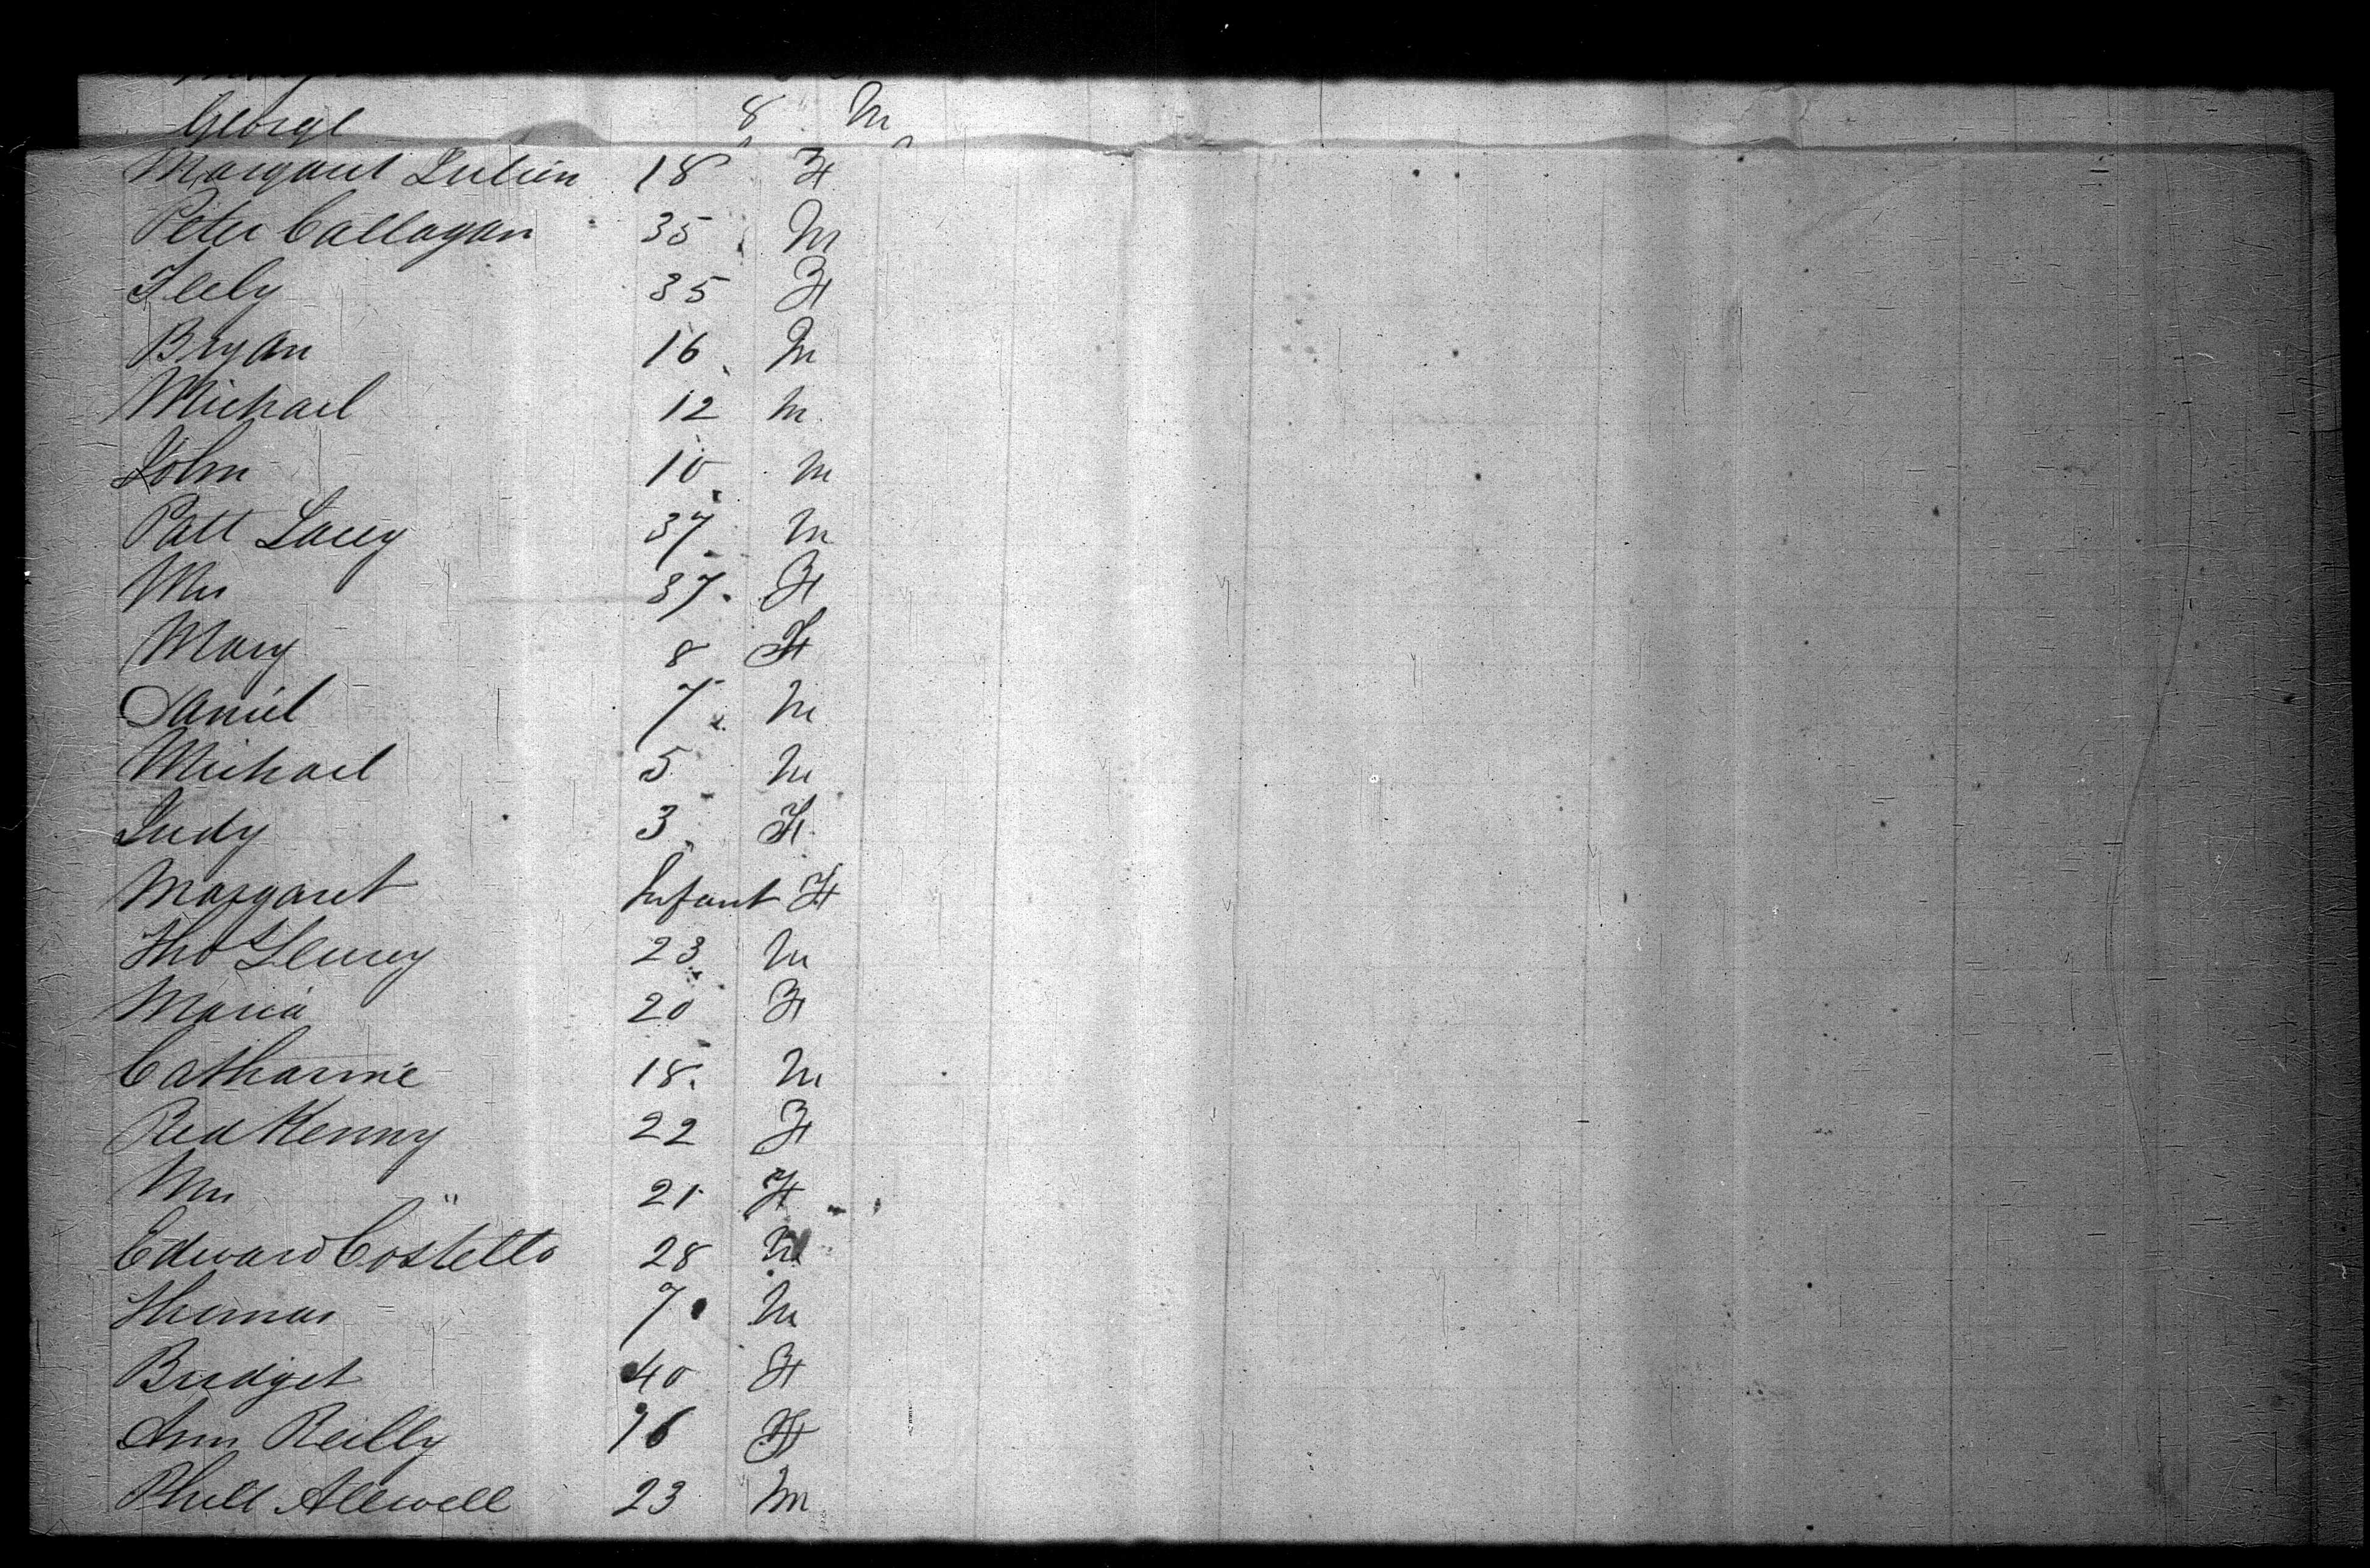 George 8 M
Margaret 18 F
Peter Callagan 35 M
35 F
Bryan 16 M
Michael 12 M
John 10 M
Patt Lacey 37 M
Mrs 37 F
Mary 8 F
Daniel 7 M
Michael 5 M
Judy 3 F
Margaret Infant F
Thos 23 M
Maria 20 F
Catharine 18 M
Kenny 22 F
Mrs " 21 F
Edward Costello 28 M
Thomas 7 M
Bridget 40 F
Ann Reilly F
Phill 23 M